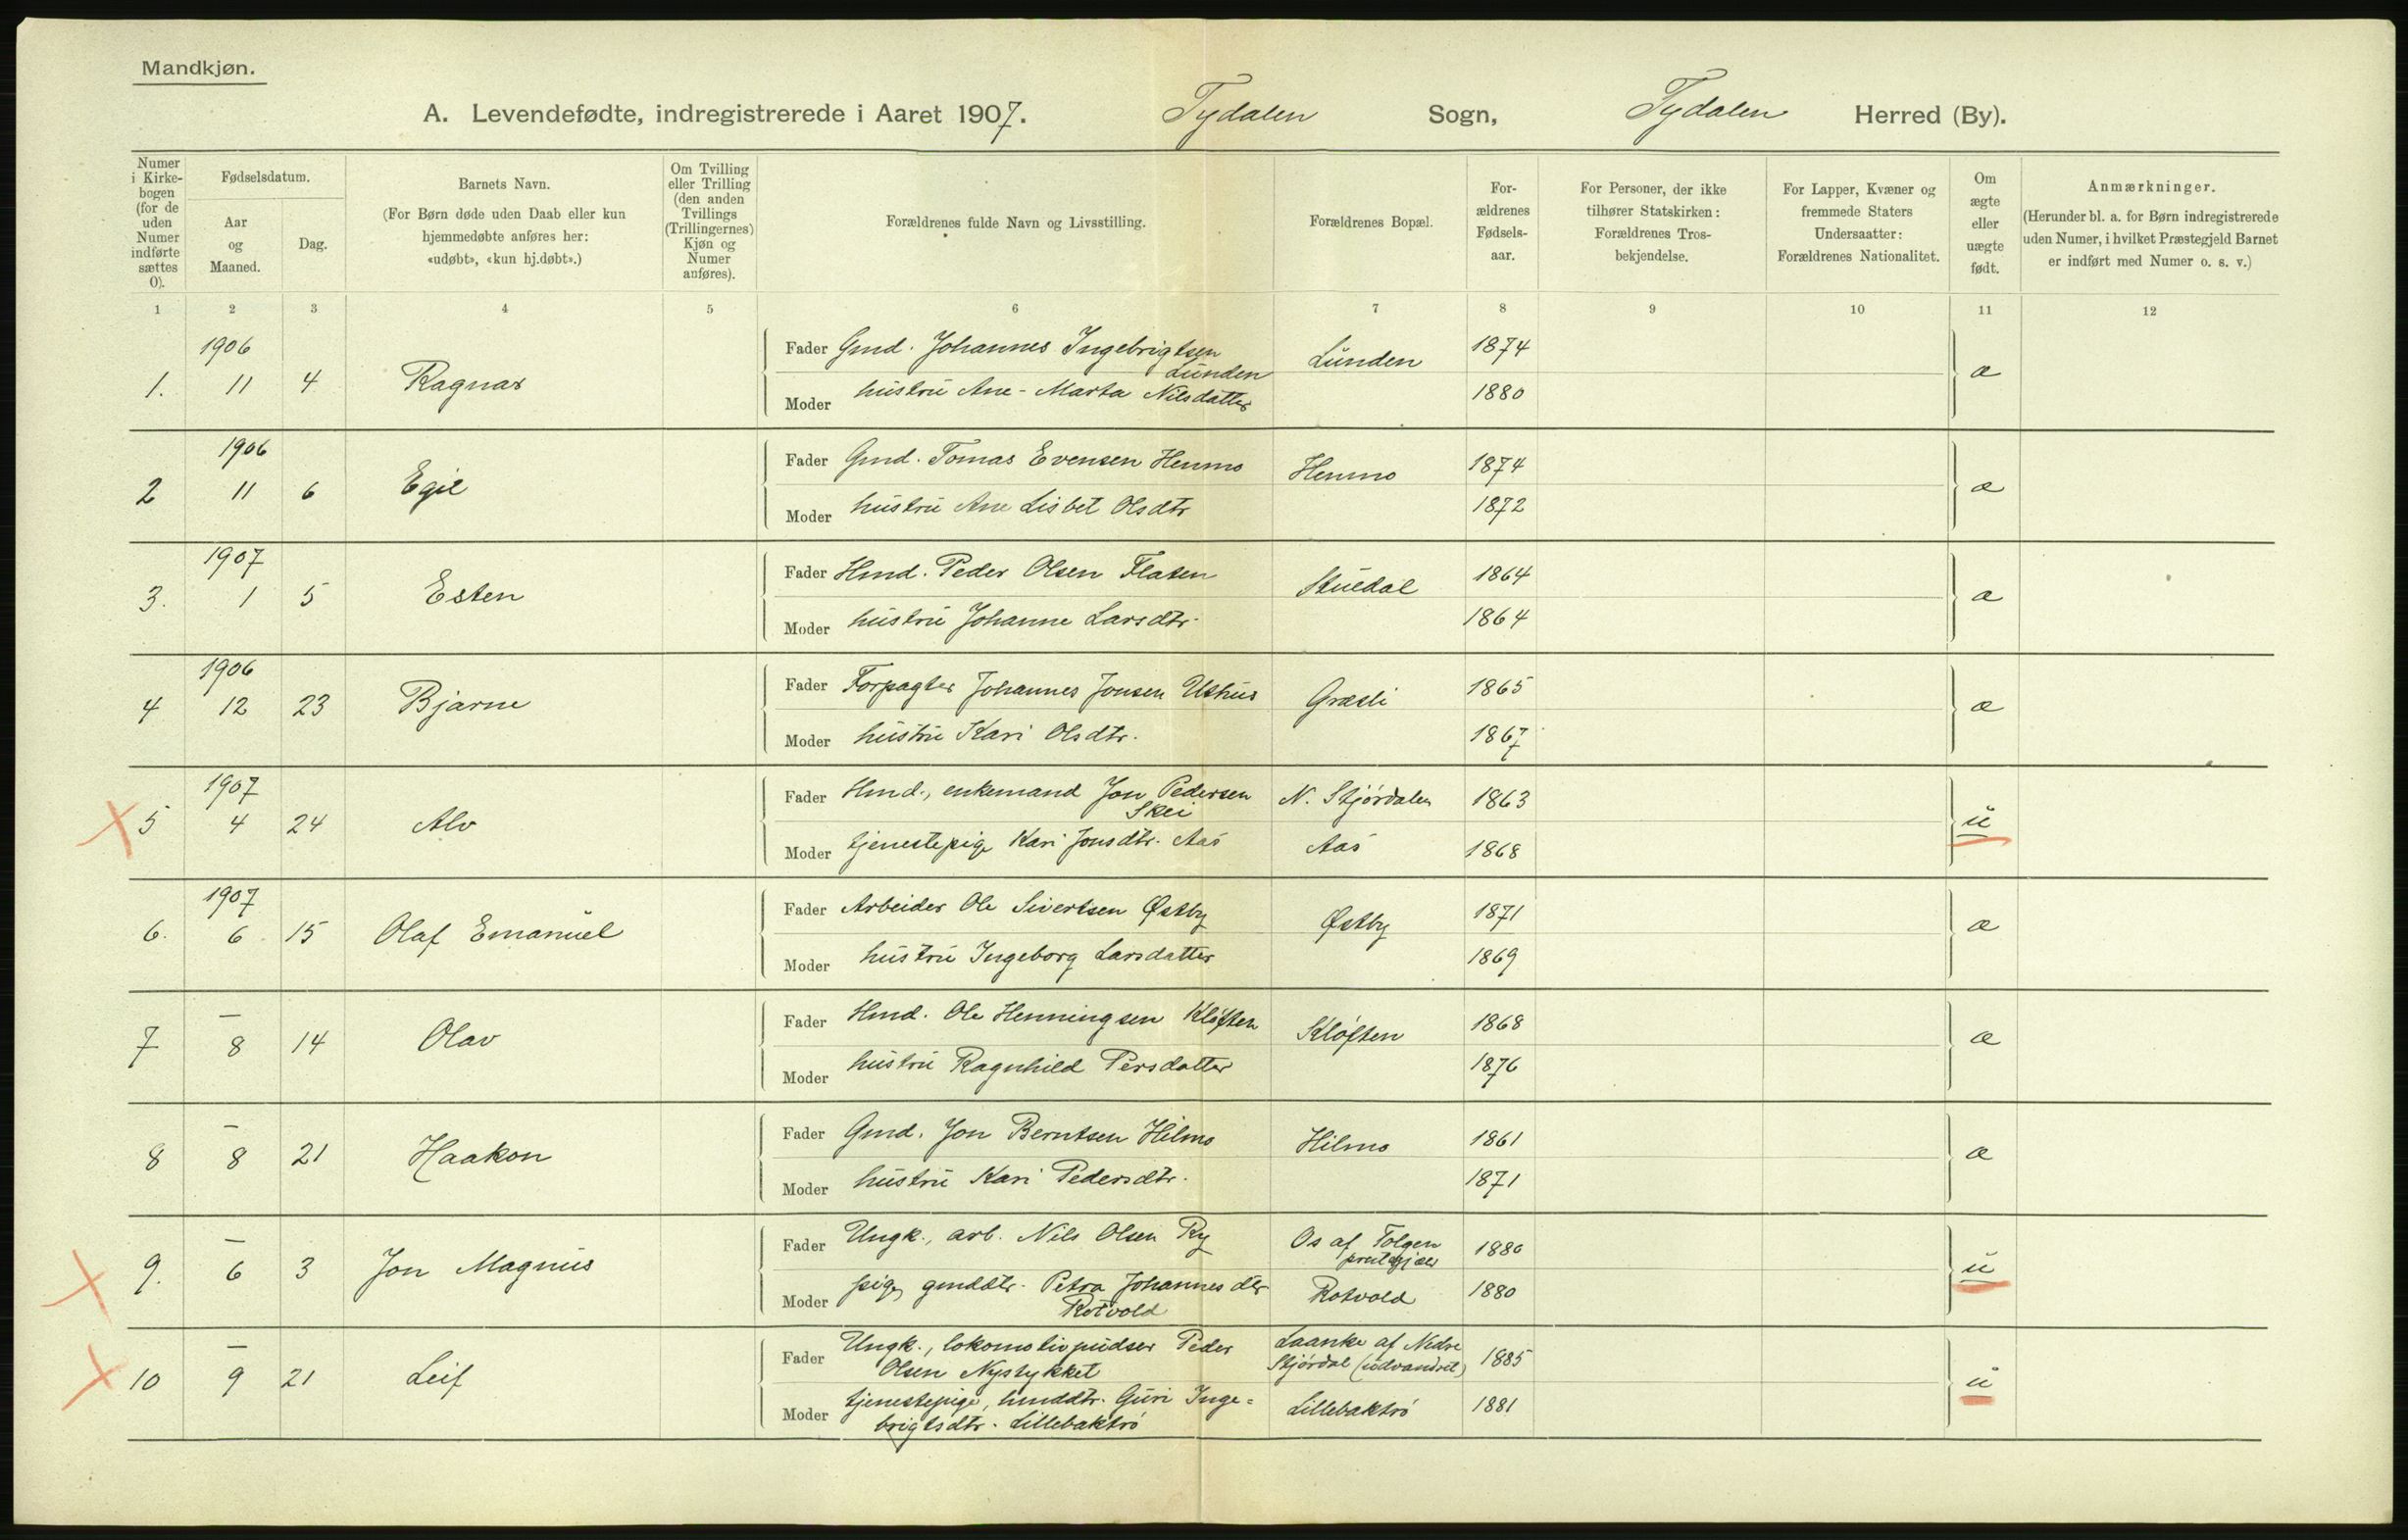 Mandkjøn.
A. Levendefødte, indregistrerede i Aaret 1907. Tydalen Sogn, Tydalen Herred (By).
Numer i Kirkebogen (for de uden Numer indførte sættes 0).
Fødselsdatum.
Aar og Maaned.
Dag.
Barnets Navn.
(For Børn døde uden Daab eller kun hjemmedøbte anføres her: «udøbt», «kun hj.døbt».)
Om Tvilling eller Trilling (den anden Tvillings (Trillingernes) Kjøn og Numer anføres).
Forældrenes fulde Navn og Livsstilling.
Forældrenes Bopæl.
Forældrenes Fødselsaar.
For Personer, der ikke tilhører Statskirken: Forældrenes Trosbekjendelse.
For Lapper, Kvæner og fremmede Staters Undersaatter: Forældrenes Nationalitet.
Om ægte eller uægte født.
Anmærkninger.
(Herunder bl. a. for Børn indregistrerede uden Numer, i hvilket Præstegjeld Barnet er indført med Numer o. s. v.)
1 2 3 4 5 6 7 8 9 10 11 12
1906
1. 11 4 Ragnar
Fader Gmd. Johannes Ingebrigtsen Lunden Lunden 1874 æ
Moder hustru Ane-Marta Nilsdatter 1880
1906
2 11 6 Egil
Fader Gmd. Tomas Evensen Henmo Henmo 1874 æ
Moder hustru Ane Lisbet Olsdtr 1872
1907
3. 1 5 Esten
Fader Hmd. Peder Olsen Flaten Stuedal 1864 æ
Moder hustru Johanne Larsdtr. 1864
1906
4 12 23 Bjarne
Fader Forpagter Johannes Jonsen Ushus Græsli 1865 æ
Moder hustru Kari Olsdtr. 1867
1907
5 4 24 Alv
Fader Hmd., enkemand Jon Pedersen Skei N. Stjørdalen 1863 u
Moder tjenestepige Kari Jonsdtr. Aas Aas 1868
1907
6. 6 15 Olaf Emanuel
Fader Arbeider Ole Sivertsen Østby Østby 1871 æ
Moder hustru Ingeborg Larsdatter 1869
—
7 8 14 Olav
Fader Hmd. Ole Henningsen Kløften Kløften 1868 æ
Moder hustru Ragnhild Persdatter 1876
—
8 8 21 Haakon
Fader Gmd. Jon Berntsen Hilmo Hilmo 1861 æ
Moder hustru Kari Pedersdtr. 1871
—
9. 6 3 Jon Magnus
Fader Ungk., arb. Nils Olsen Ry Os af Tolgen 1880 u
Moder pige, gmddtr. Petra Johannesdtr Rotvold Rotvold 1880
—
10 9 21 Leif
Fader Ungk., lokomotivpudser Peder Olsen Nystykket Laanke af Nedre Stjørdal (udvandret) 1885 u
Moder tjenestepige, hmddtr. Guri Inge=
brigtsdtr. Lillebaktrø Lillebaktrø 1881